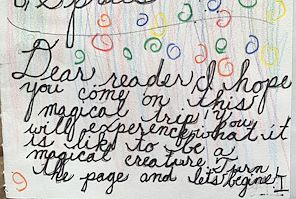 Dear reader, I hope
you come on this
magical trip! You
will experience what it
is like to be a
magical creature. Turn
the page and let's begine!